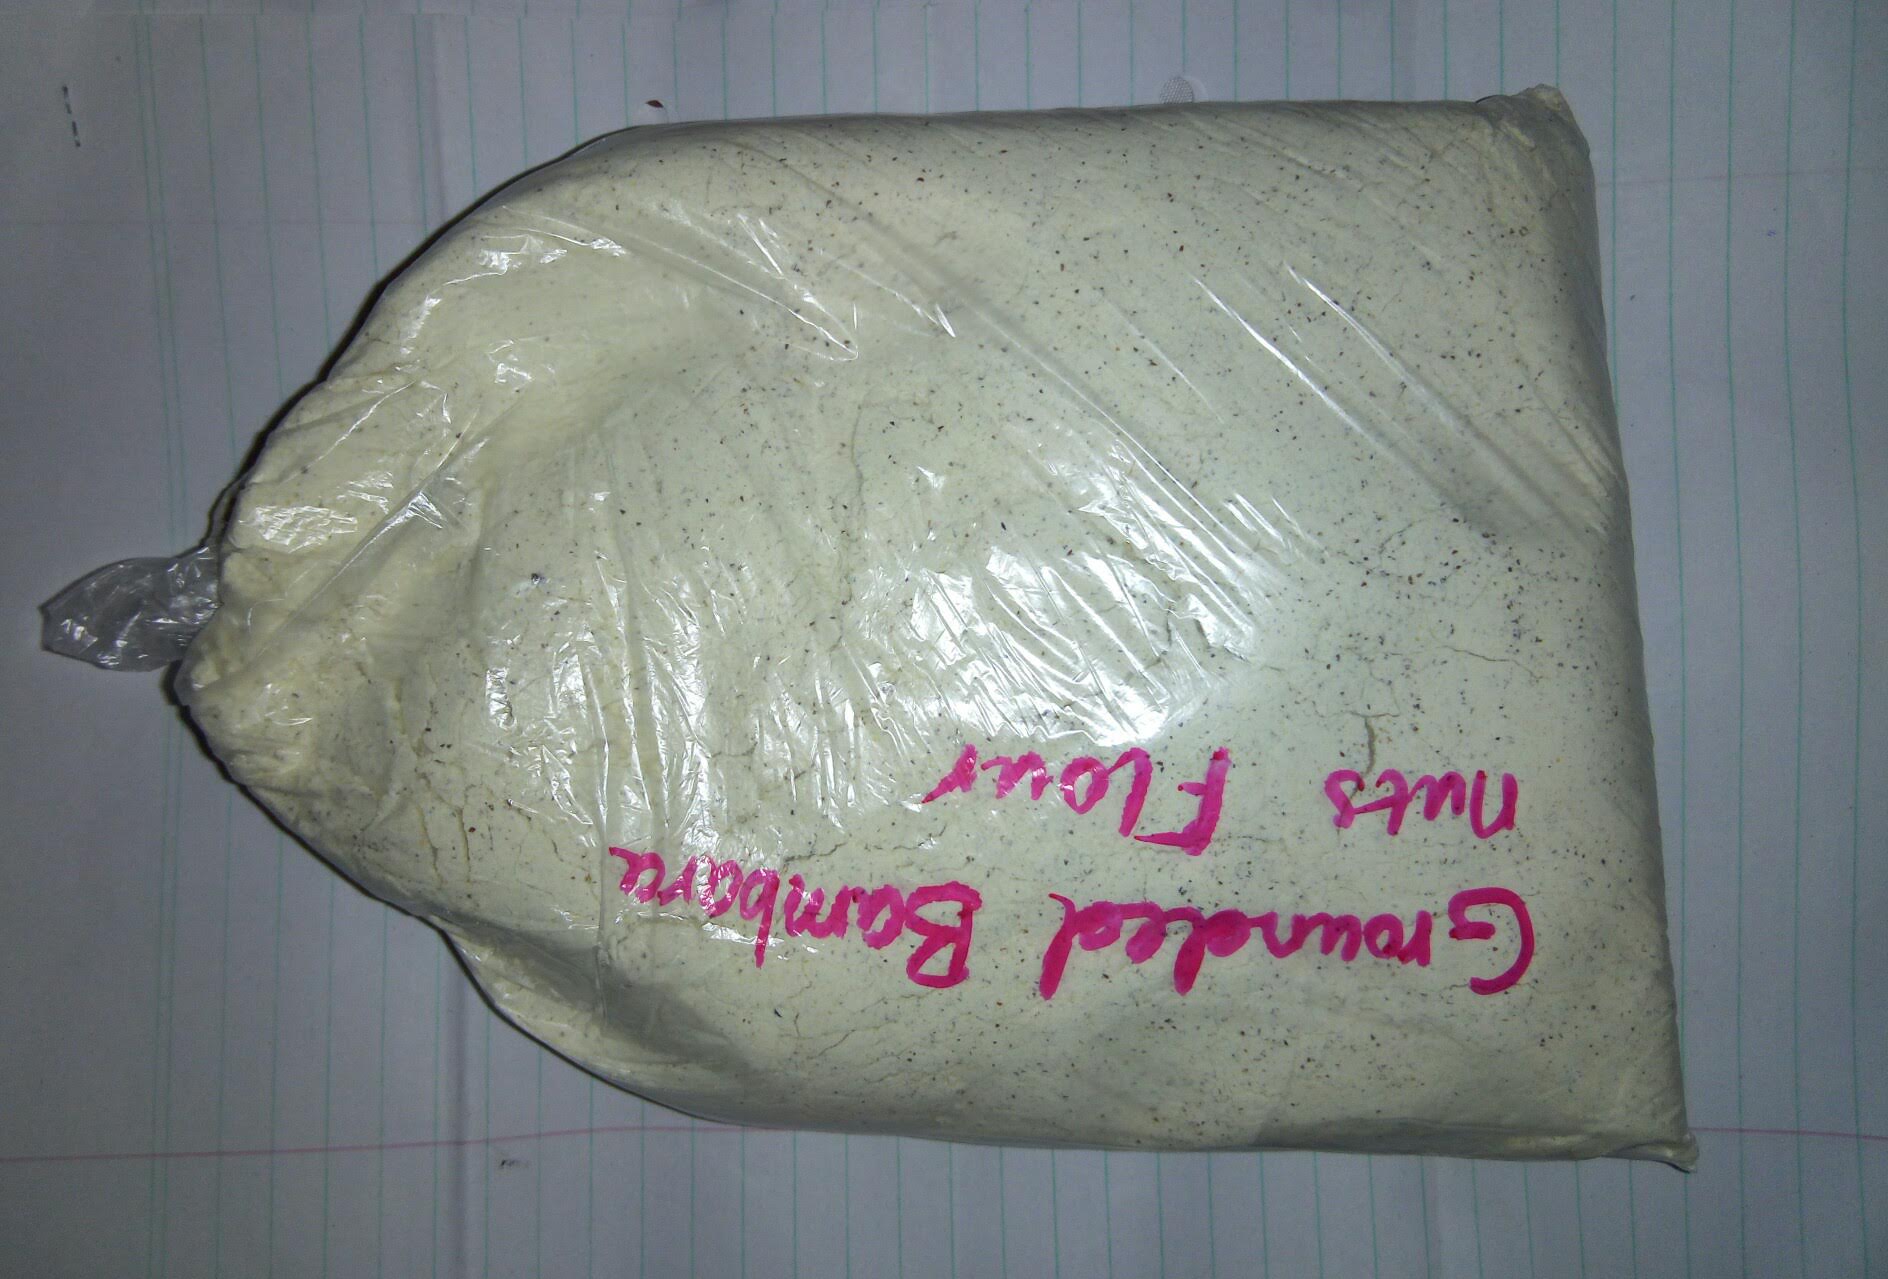 Grounded Bambara
nuts Flour